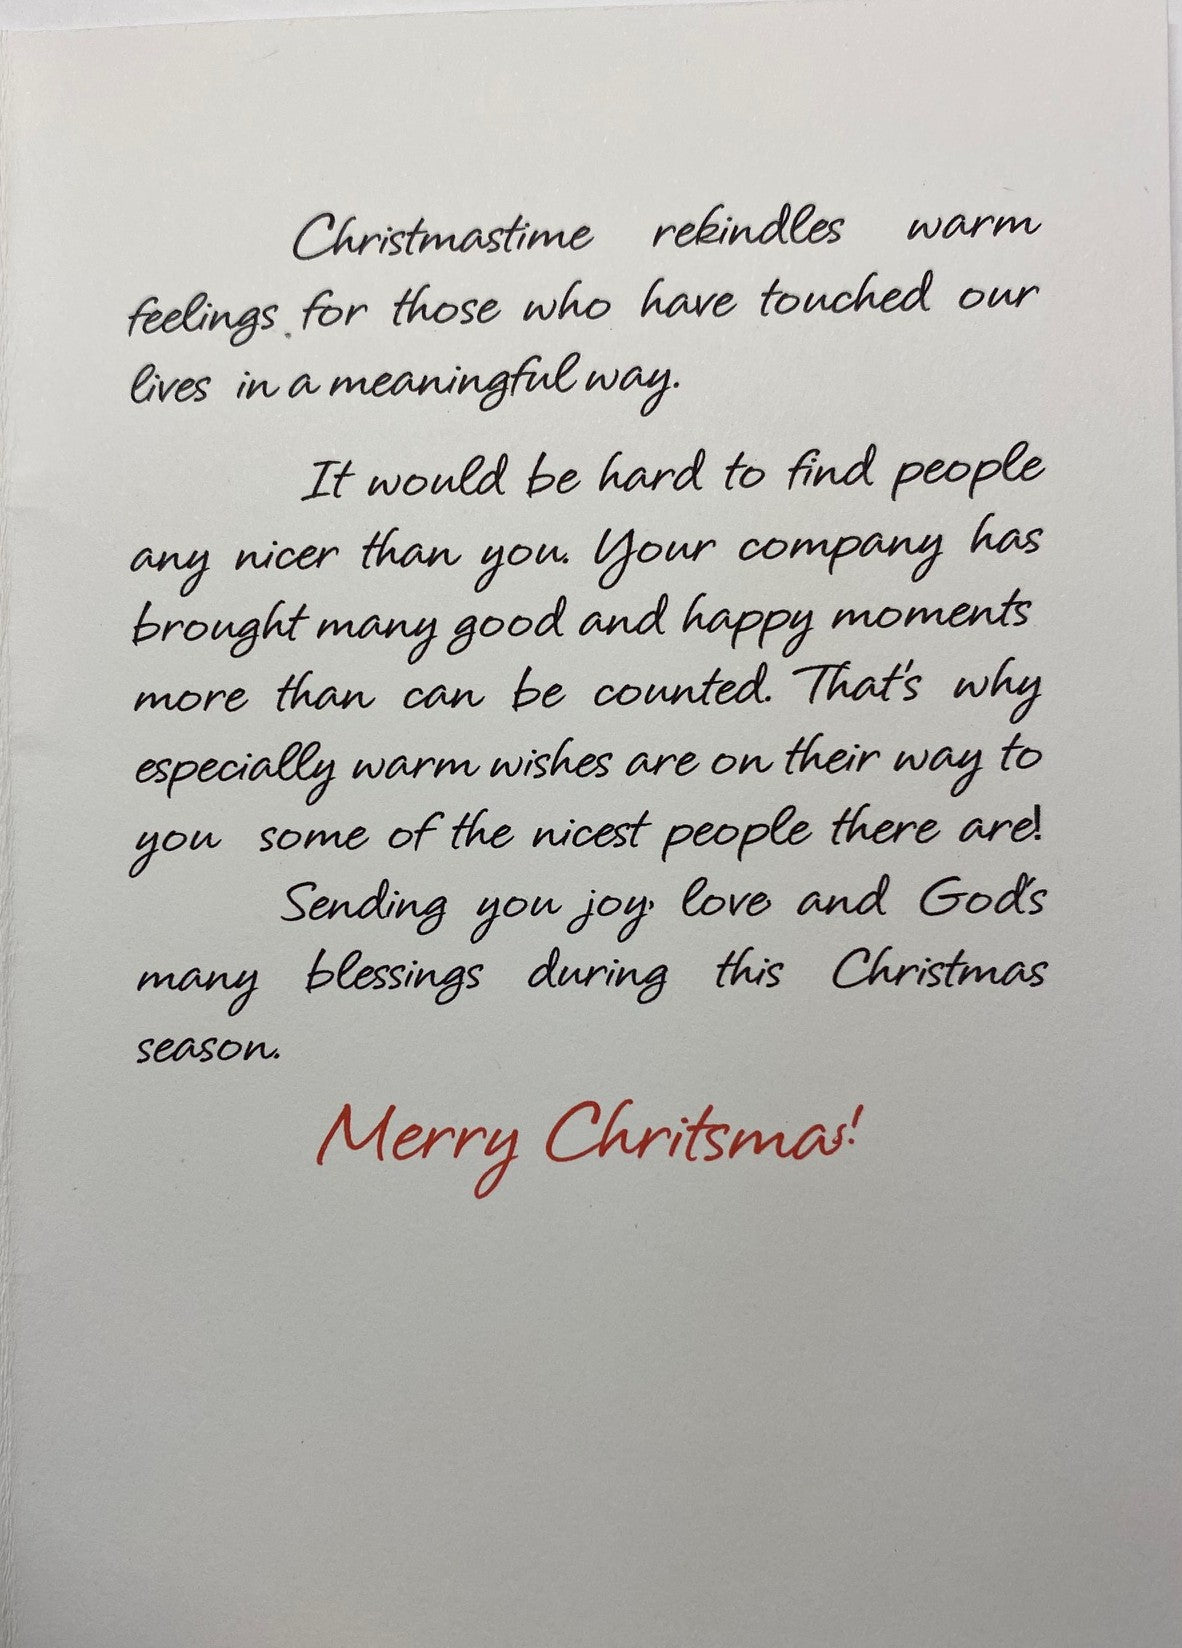 Christmastime rekindles warm
feelings for those who have touched our
lives in a meaningful way.
It would be hard to find people
any nicer than you. Your company has
brought many good and happy moments
more than can be counted. That's why
especially warm wishes are on their way to
you some of the nicest people there are!
Sending you joy, love, and God's
many blessings during this Christmas
season.
Merry Chritsmas!